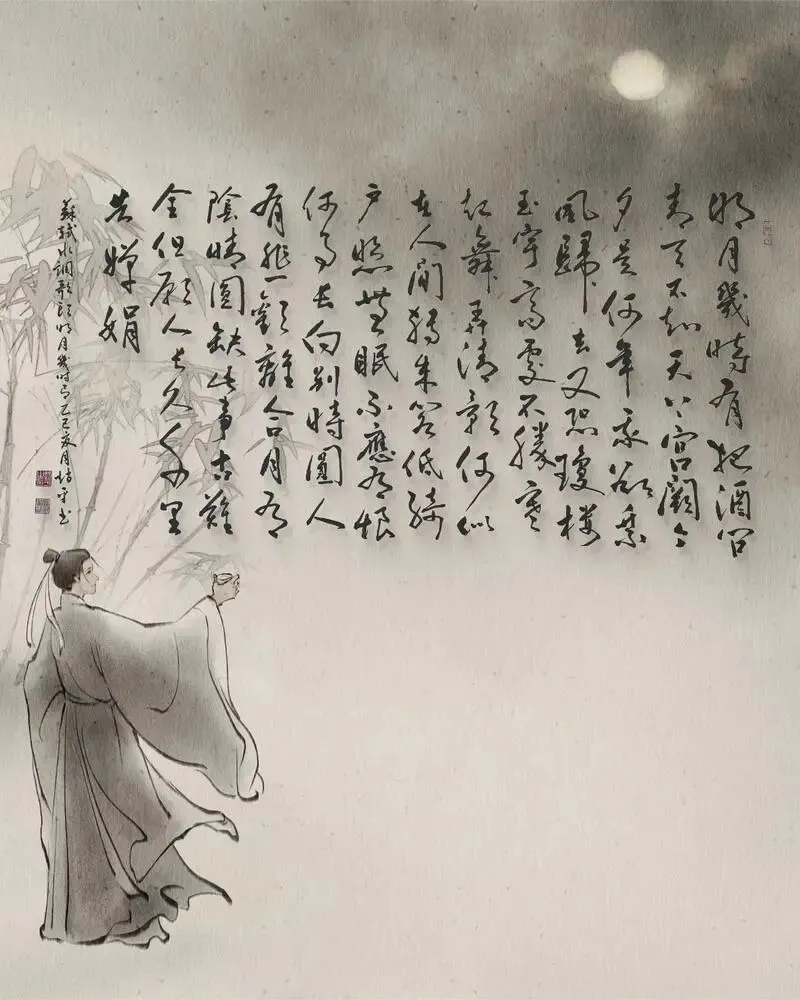 明月幾時有把酒問
青天不知天上宮闕今
夕是何年我欲乘
風歸去又恐瓊樓
玉宇高處不勝寒
起舞弄清影何似
在人間轉朱閣低綺
戶照無眠不應有恨
何事長向別時圓人
有悲歡離合月有
陰晴圓缺此事古難
全但願人長久千里
共嬋娟
蘇軾水調歌頭明月幾時有乙巳夏月平書